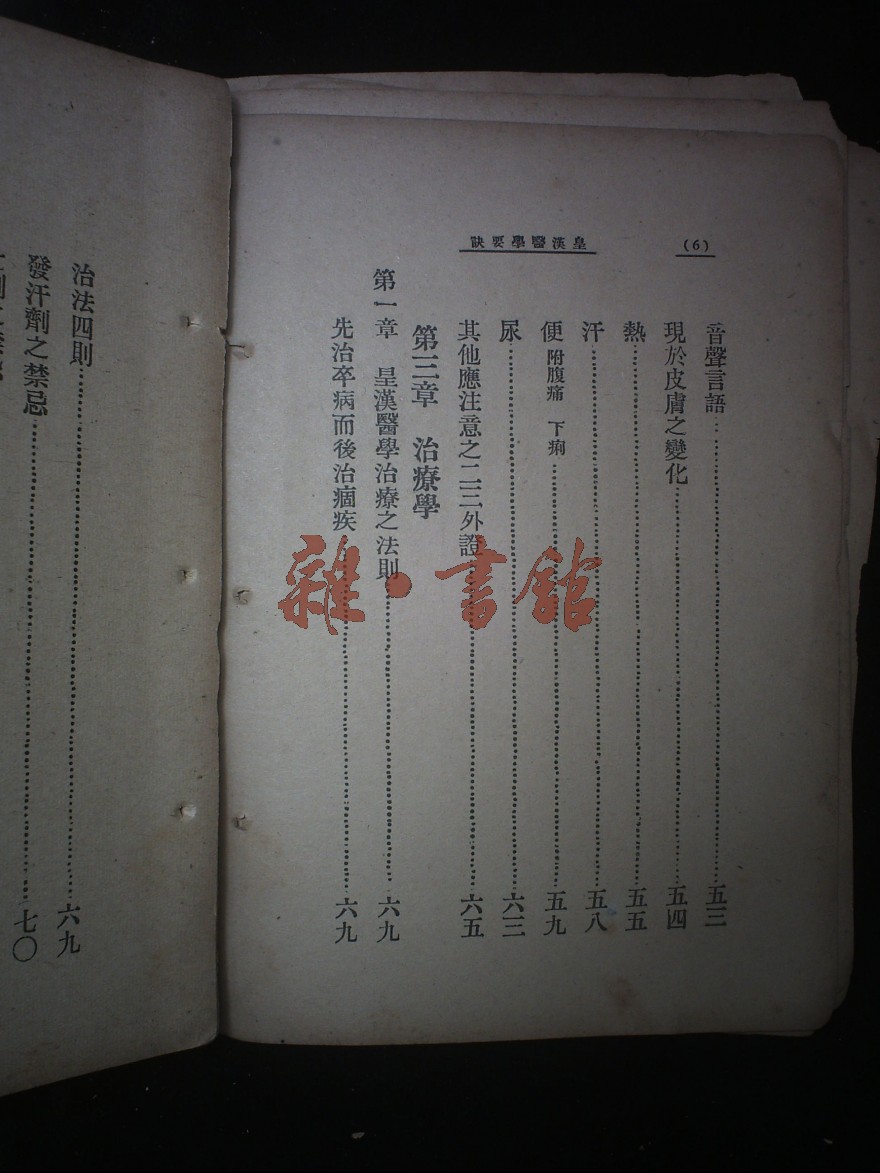 (6)
皇漢醫學要訣
音聲言語……五三
現於皮膚之變化……五四
熱……五五
汗……五八
便 附腹痛 下痢……五九
尿……六三
其他應注意之二三外證……六五
第三章 治療學
第一章 皇漢醫學治療之法則……六九
先治卒病而後治痼疾……六九
治法四則……六九
發汗劑之禁忌……七〇
雜·書館